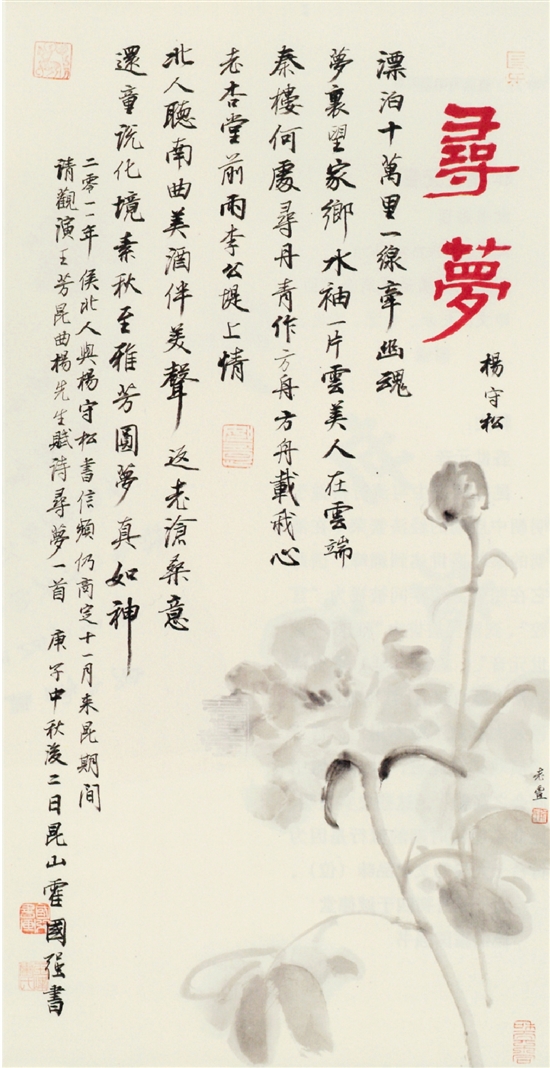 尋夢
楊守松
漂泊十萬里一線牽幽魂
夢裏望家鄉水袖一片雲美人在雲端
秦樓何處尋丹青作方舟方舟載我心
老杏堂前雨李公堤上情
北人聽南曲美酒伴美聲返老滄桑意
還童說化境素秋至雅芳圓夢真如神
二零一一年侯北人與楊守松書信頻仍商定十一月来昆期間
请觀演王芳昆曲楊先生賦诗尋夢一首 庚子中秋後二日昆山霍國强書